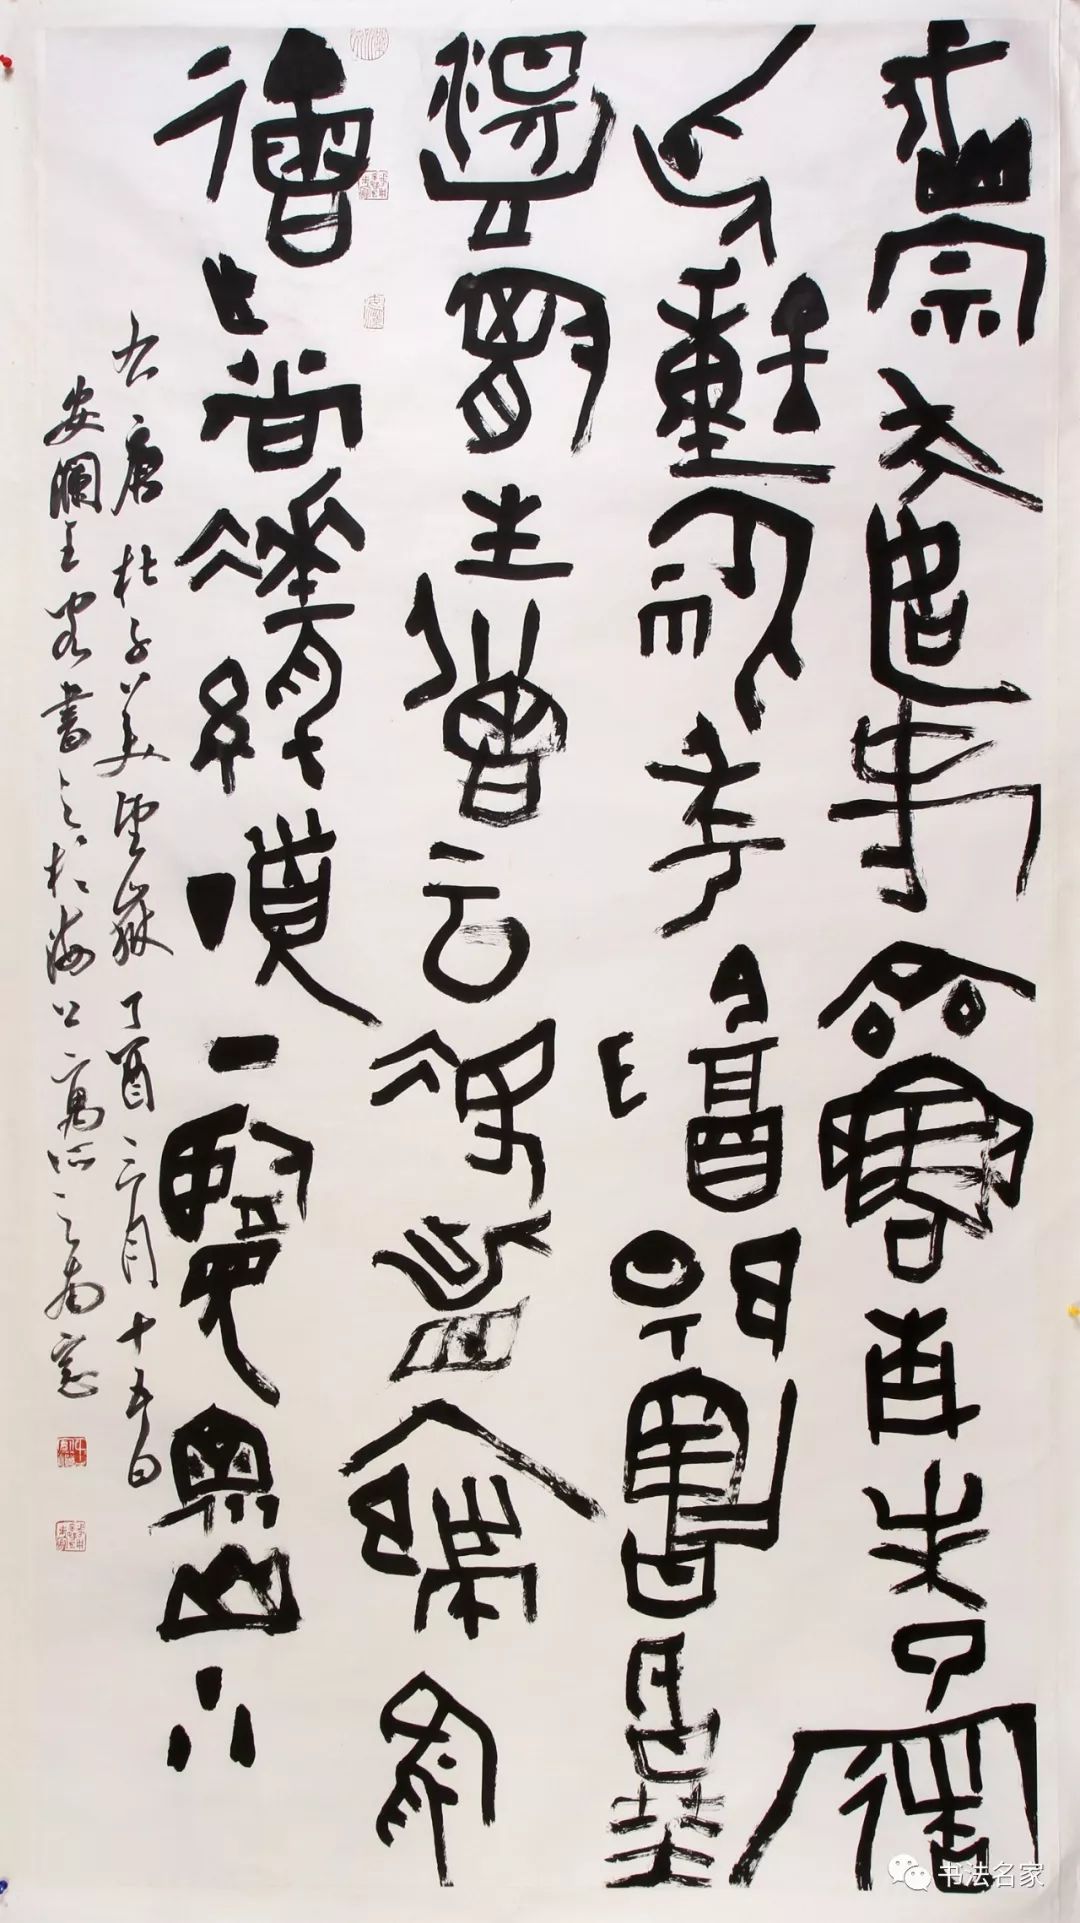 岱宗夫如何齊魯青未了造
化鍾神秀陰陽割昏曉
盪胸生曾云決眥入歸鳥
會當凌絕頂一覽眾山小
右唐杜子美望嶽丁酉三月十五日
安瀾王客書之於海公寓所之南窗
书法名家